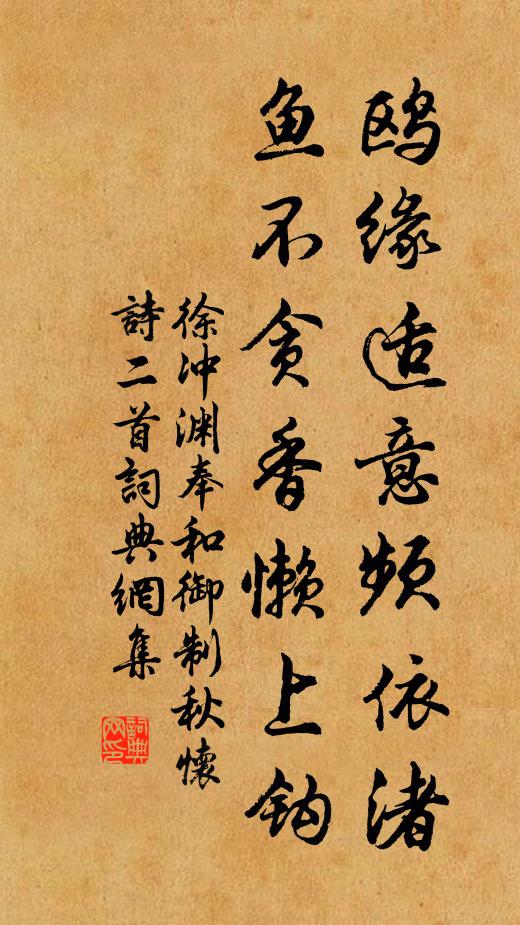 鸥缘适意频依渚
鱼不贪香懒上钩
徐冲渊奉和御制秋懷
詩二首詞典網集
詞典网印